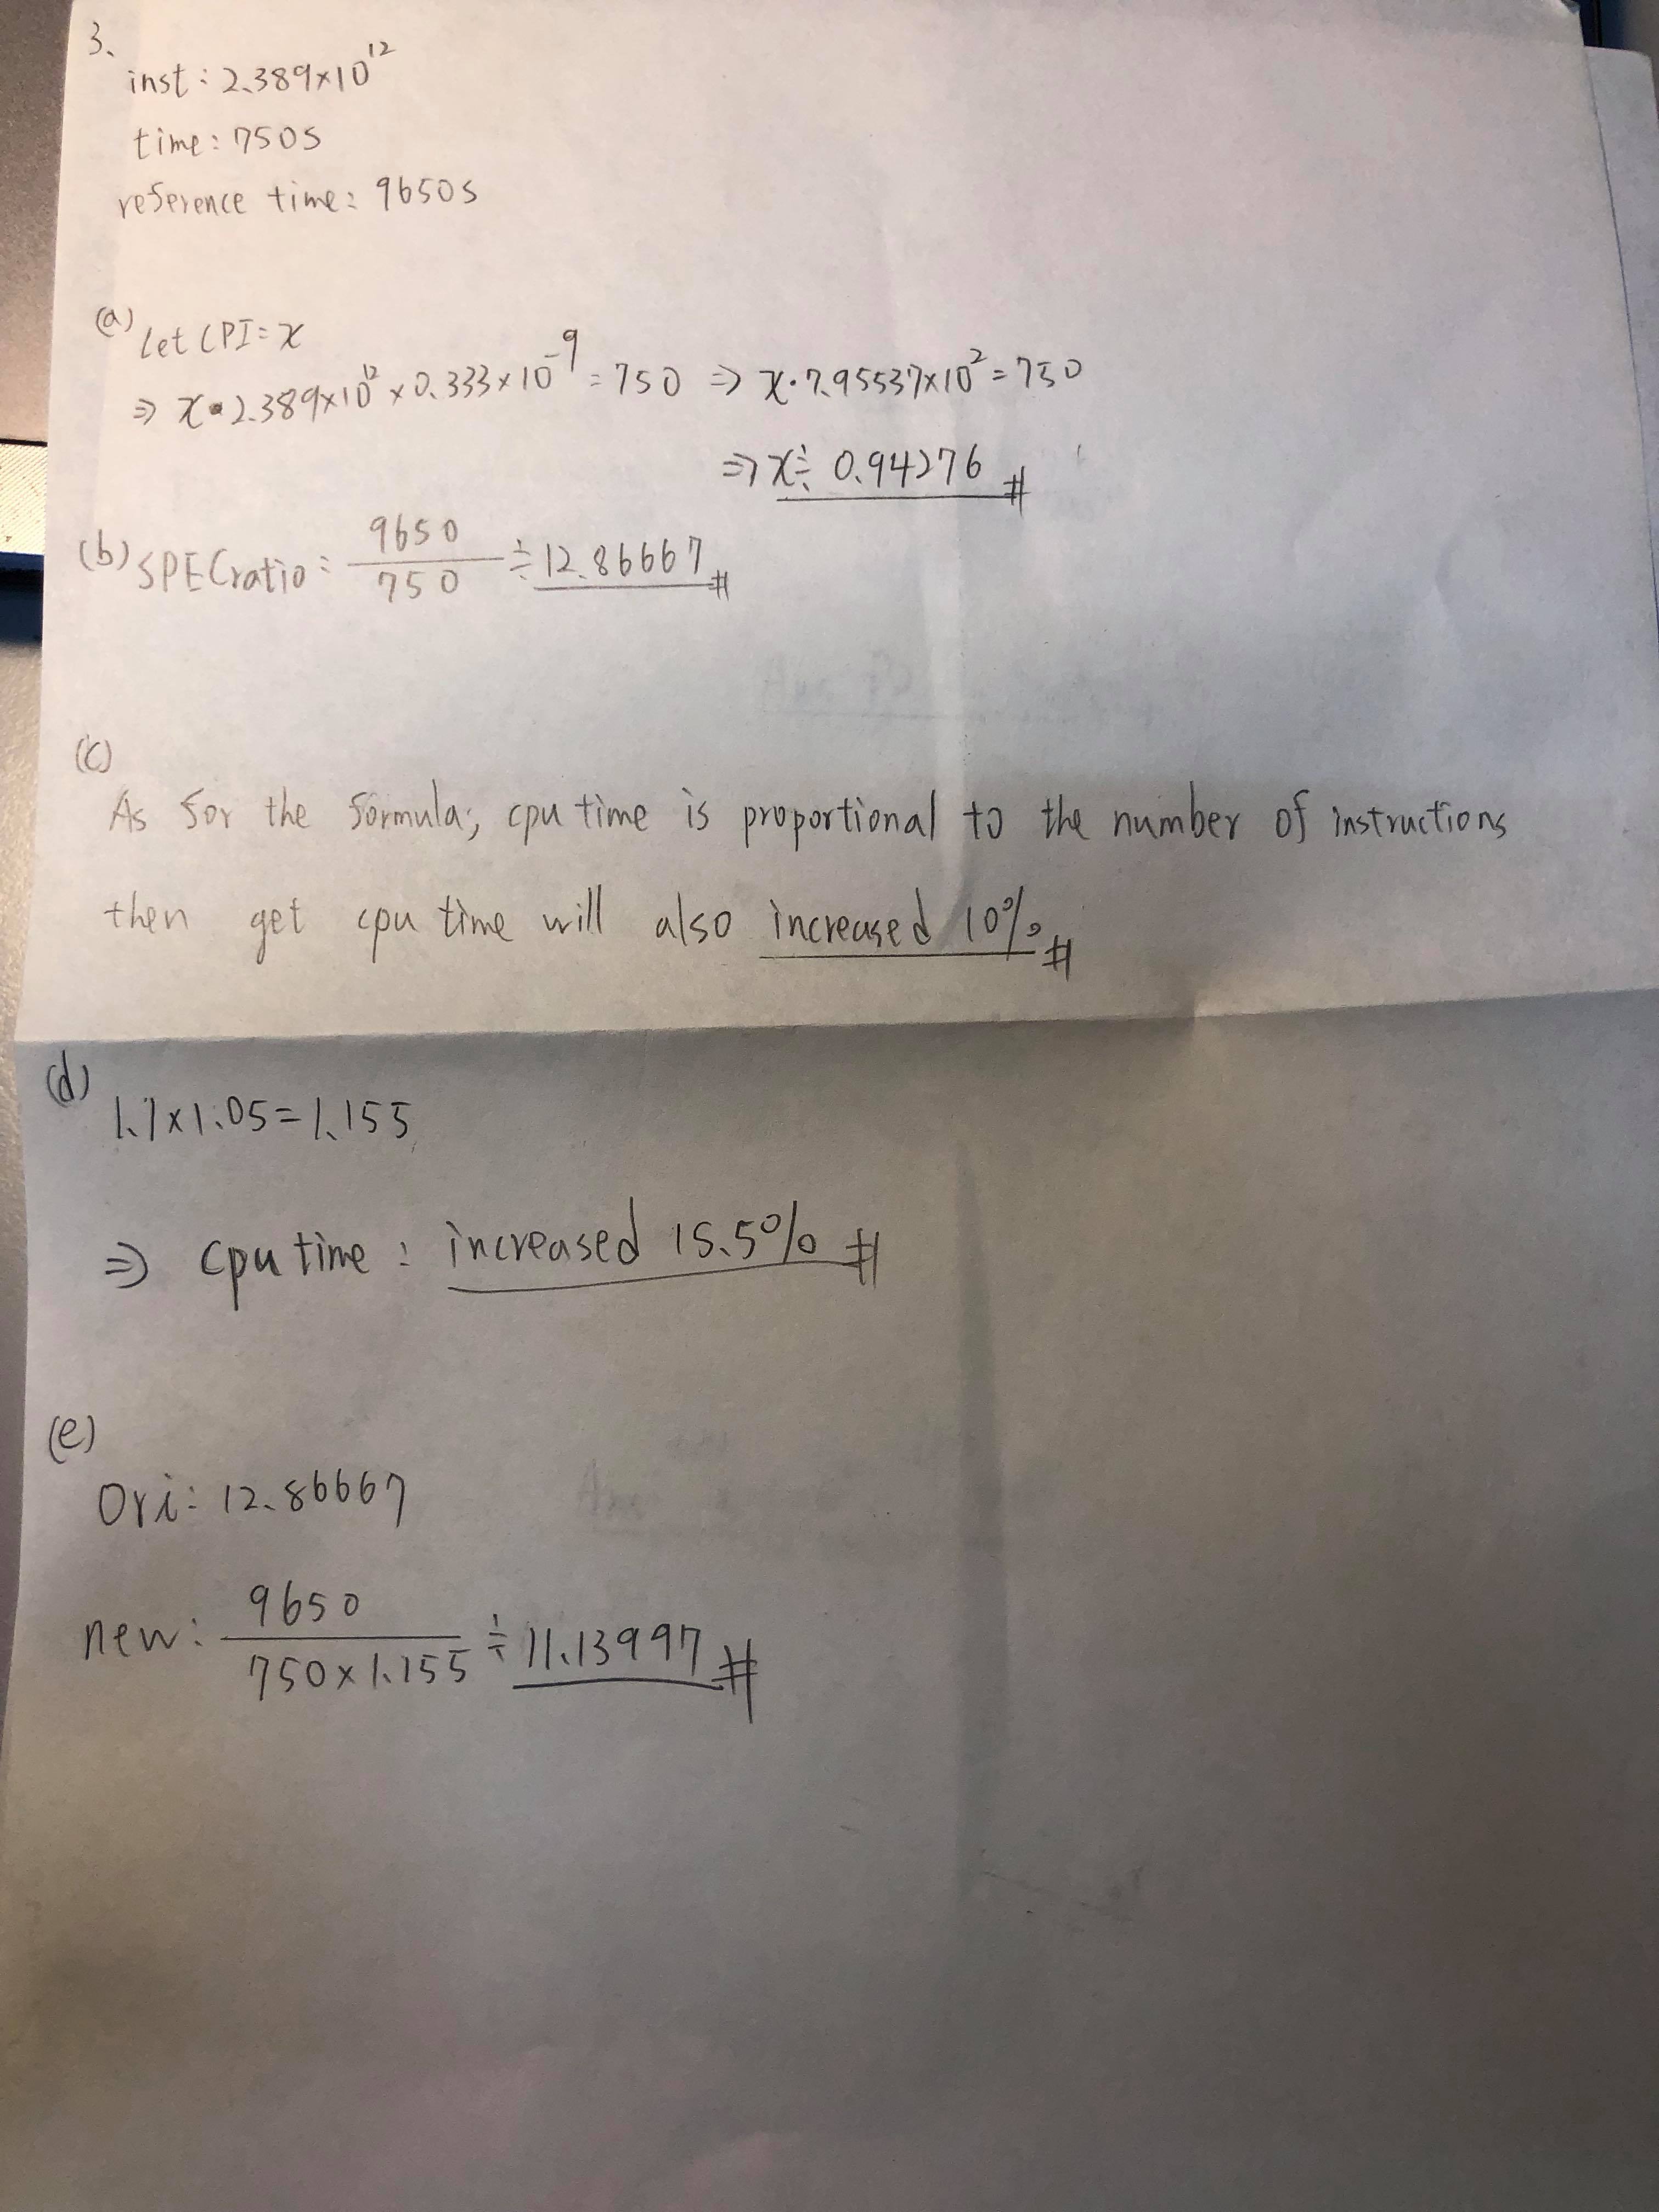 3、
inst: 2.389×10^12
time: 750s
reference time: 9650s
(a) Let CPI = x
⇒ x•2.389×10^12 × 0.333×10^-9 = 750 ⇒ x•7.95537×10^2 = 750
⇒ x ≒ 0.94276 #
(b) SPECratio = 9650/750 ≒ 12.86667 #
(c)
As for the formula, cpu time is proportional to the number of instructions
then get cpu time will also increased 10% #
(d)
1.1×1.05=1.155
⇒ cpu time: increased 15.5% #
(e)
Ori: 12.86667
new: 9650/750×1.155 ≒ 11.13997 #